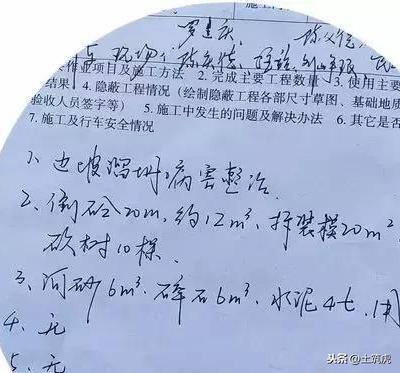 施工
罗建庆
现场
作业项目及施工方法 2. 完成主要工程数量 3. 使用主要
结果 4. 隐蔽工程情况（绘制隐蔽工程各部尺寸草图、基础地质
验收人员签字等） 5. 施工中发生的问题及解决办法 6. 其它是否
7. 施工及行车安全情况
1、边坡溜坍病害整治.
2、倒砼20m，约12m³，拆装模20m²
砍树10棵.
3、河砂6m³、碎石6m³、水泥4t，用
4、无
5、无
头条@土筑虎